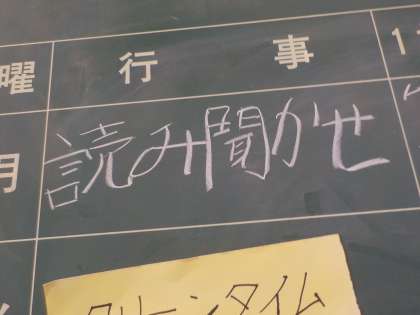 曜 行事 11
月 読み聞かせ
クリーンタイム